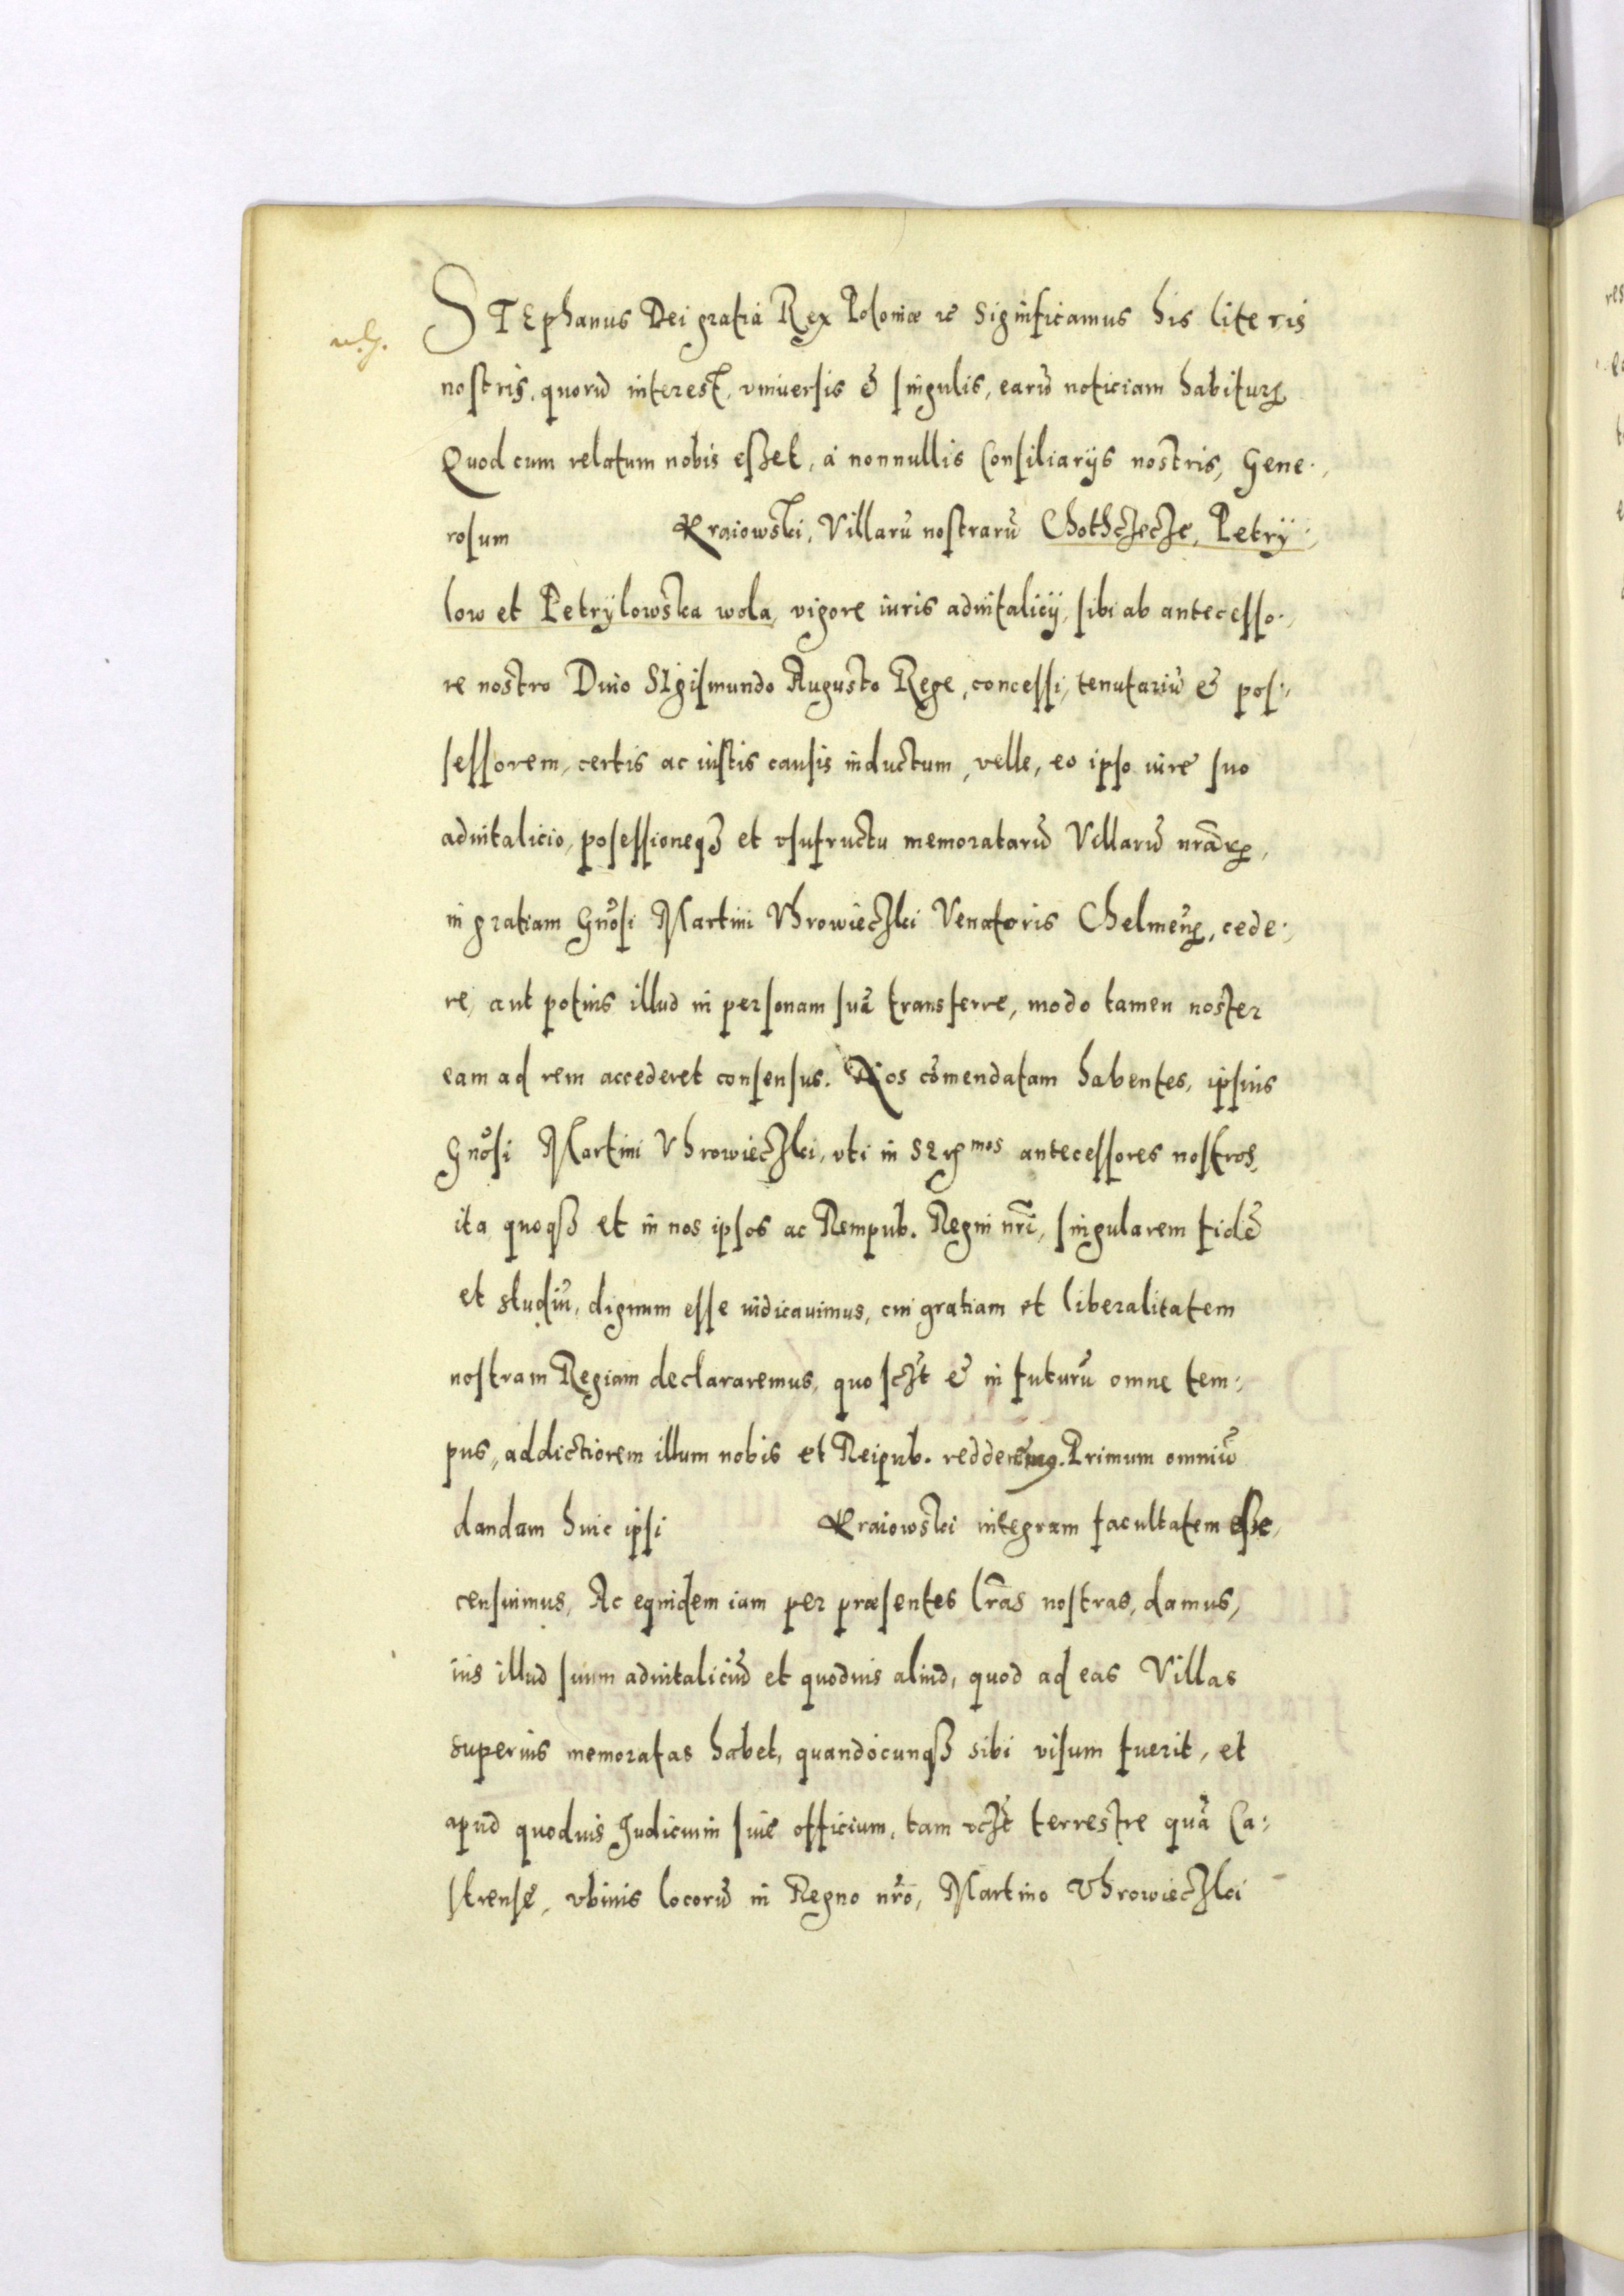 STEphanus Dei gratia Rex Poloniæ ꝛc Significamus his literis
nostris, quorū interest, vniuersis & singulis, earū noticiam habituꝝ
Quod cum relatum nobis esset, à nonnullis Consiliarijs nostris, Gene⸗
rosum Kraiowski, Villarū nostrarū Chothczecze, Petry⸗
low et Petrylowska wola, vigore iuris aduitalicij, sibi ab antecesso⸗
re nostro Dnio SIgismundo Augusto Rege, concessi, tenutariū & pos⸗
sessorem, certis ac iustis causis inductum, velle, eo ipso iure suo
aduitalicio, posessioneqꝫ et vsufructu memoratarū Villarū nrāꝝ,
in gratiam Gnōsi Martini Vhrowieczki Venatoris Chelmeñ, cede⸗
re, aut potius illud in personam suā transferre, modo tamen noster
eam ad rem accederet consensus. Nos cōmendatam habentes, ipsius
Gnōsi Martini Vhrowieczki, vti in Serᵐᵒˢ antecessores nostros,
ita quoqꝫ et in nos ipsos ac Rempub. Regni nrī, singularem fidē
et studiū, dignum esse iudicauimus, cui gratiam et liberalitatem
nostram Regiam declararemus, quo sczt & in futurū omne tem⸗
pus, addictiorem illum nobis et Reipub. redderemꝰ. Primum omniū
dandam huic ipsi Kraiowski integram facultatem esse,
censuimus, Ac equidem iam per præsentes lrās nostras, damus,
ius illud suum aduitaliciū et quoduis aliud, quod ad eas Villas
superius memoratas habet, quandocunqꝫ sibi visum fuerit, et
apud quoduis Judicium siue officium, tam vczt terrestre quā Ca⸗
strense, vbiuis locorū in Regno nrō, Martino Vhrowieczki